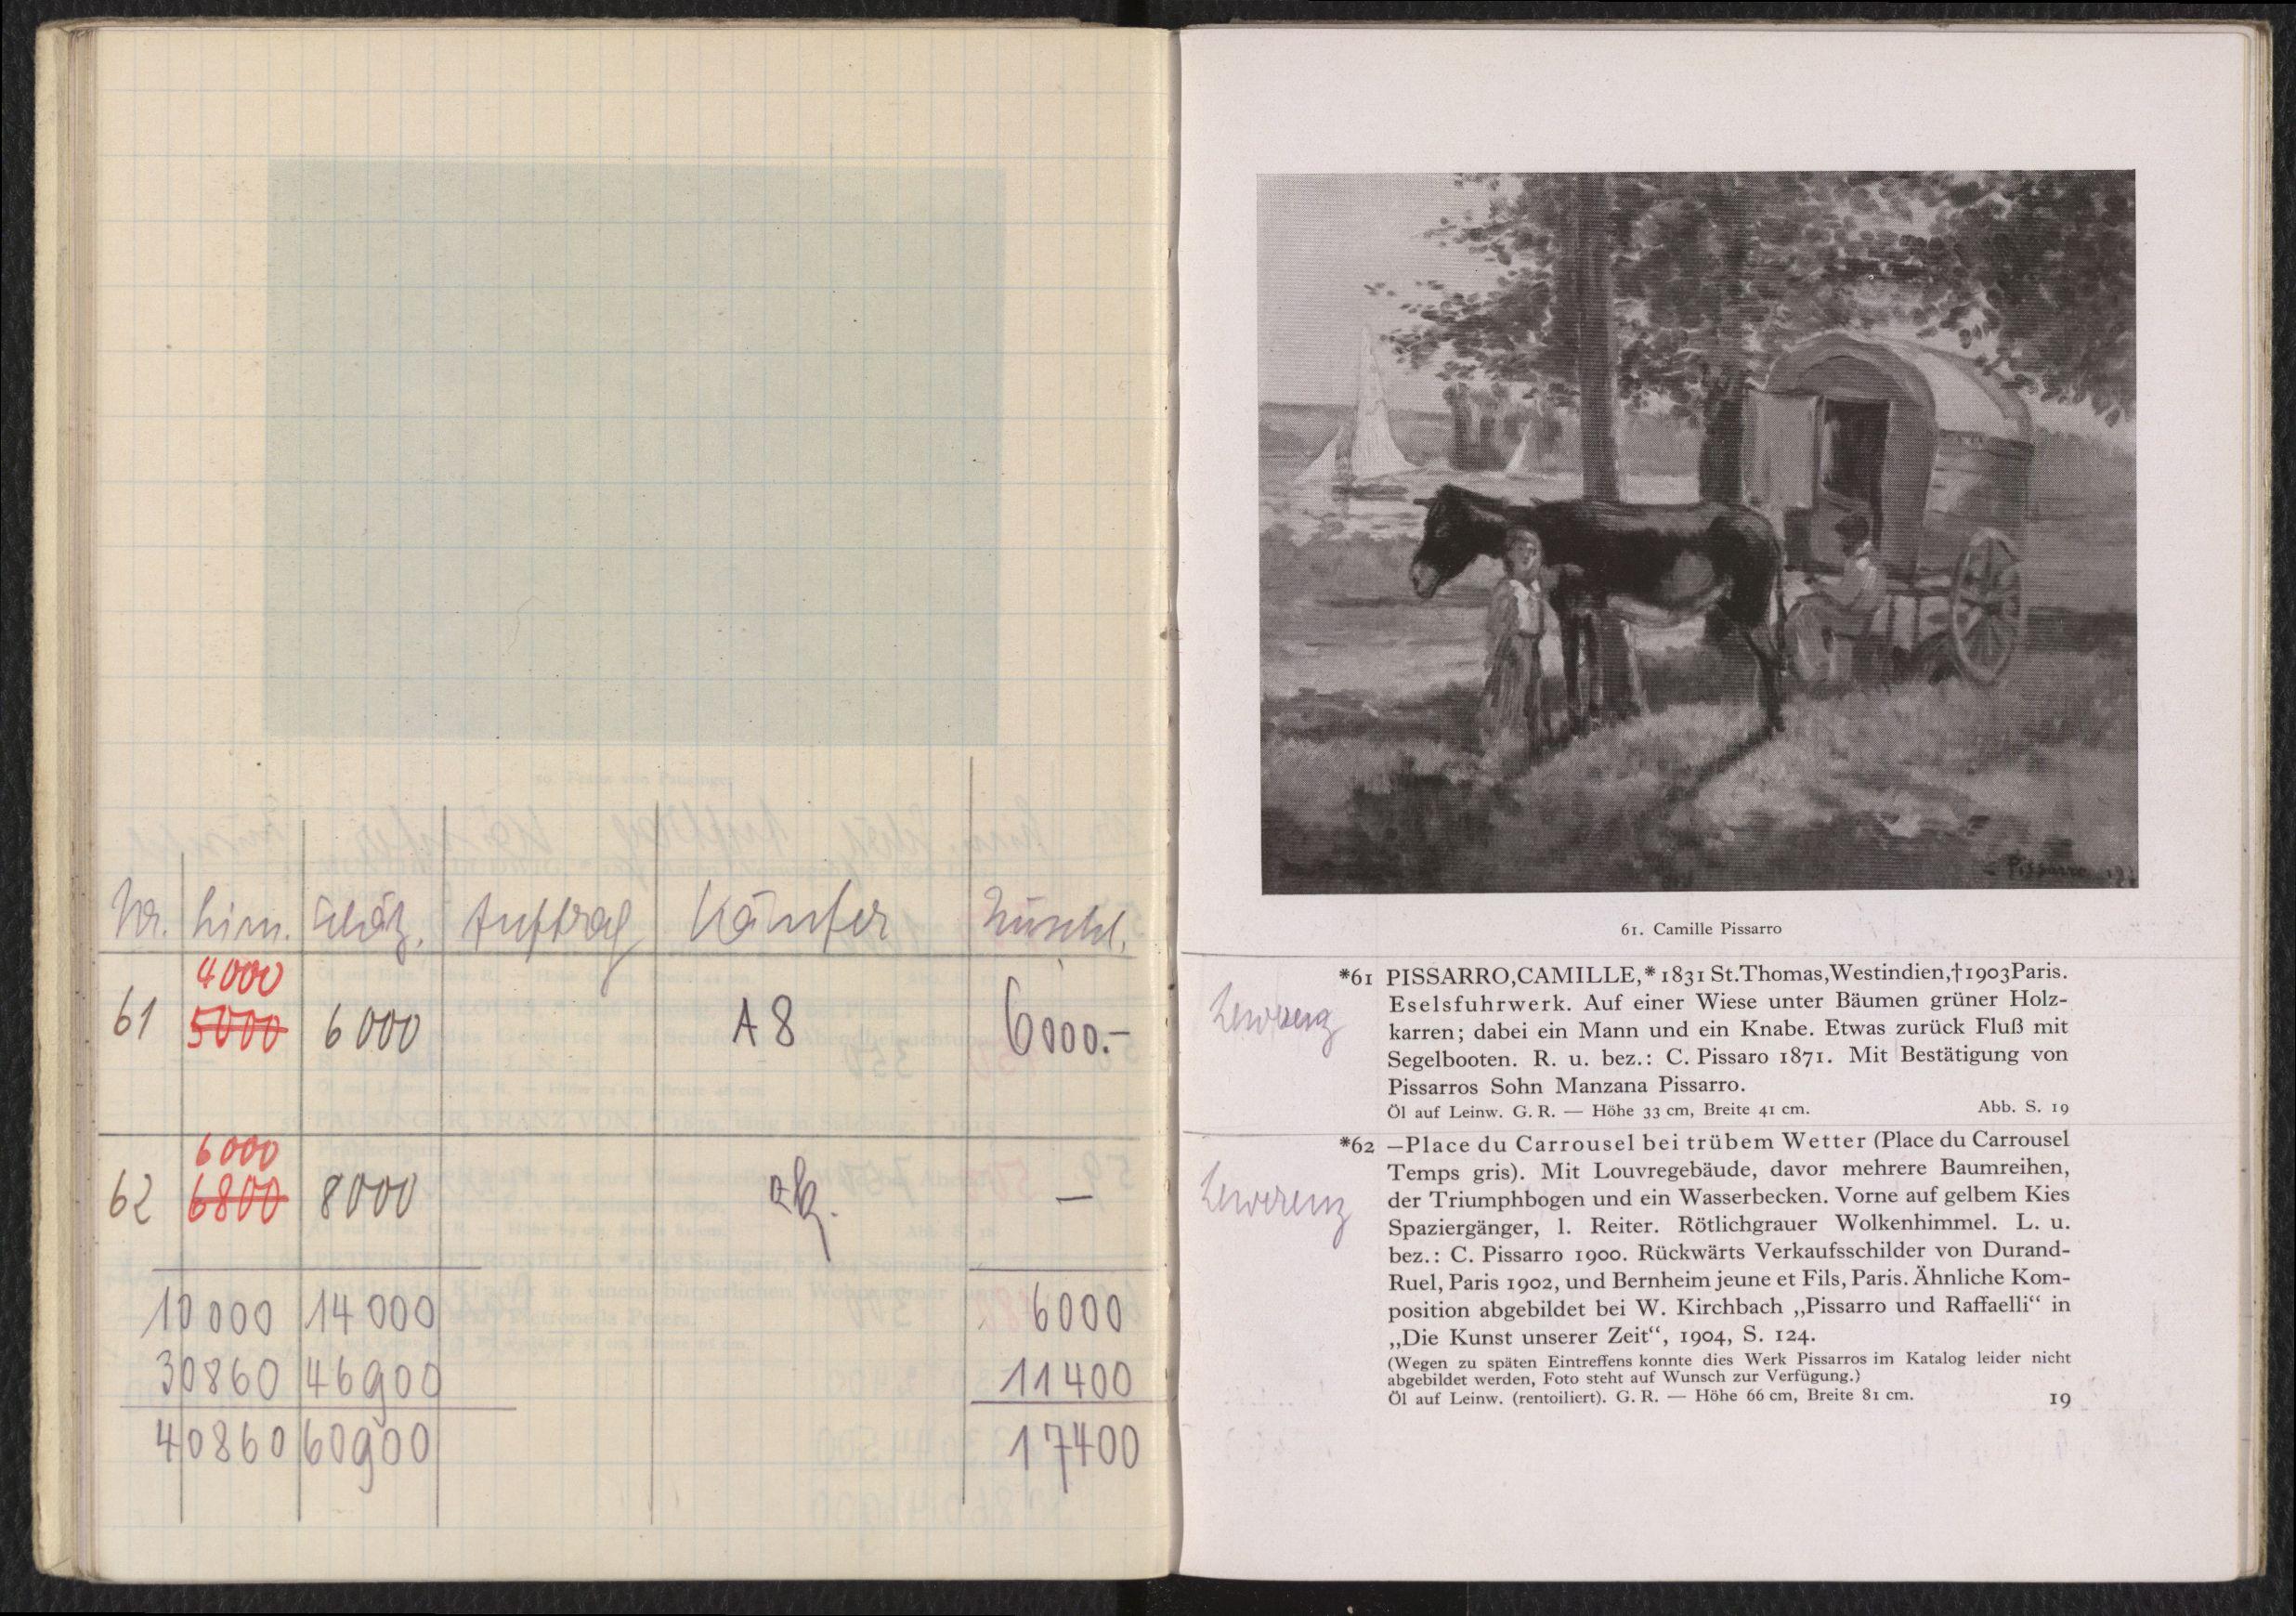 Nr. | Lim. | Schätz. | Auftrag | Käufer | Zuschl.
4000
61 | 5000 | 6000 | A 8 | 6000.-
6000
62 | 6800 | 8000 | zk. | —
10000 | 14000 | 6000
30860 | 46900 | 11400
40860 | 60900 | 17400
Pissarro
61. Camille Pissarro
*61 PISSARRO, CAMILLE, * 1831 St. Thomas, Westindien, † 1903 Paris.
Eselsfuhrwerk. Auf einer Wiese unter Bäumen grüner Holz-
karren; dabei ein Mann und ein Knabe. Etwas zurück Fluß mit
Segelbooten. R. u. bez.: C. Pissaro 1871. Mit Bestätigung von
Pissarros Sohn Manzana Pissarro.
Öl auf Leinw. G. R. — Höhe 33 cm, Breite 41 cm. Abb. S. 19
Lewerenz
*62 —Place du Carrousel bei trübem Wetter (Place du Carrousel
Temps gris). Mit Louvregebäude, davor mehrere Baumreihen,
der Triumphbogen und ein Wasserbecken. Vorne auf gelbem Kies
Spaziergänger, l. Reiter. Rötlichgrauer Wolkenhimmel. L. u.
bez.: C. Pissarro 1900. Rückwärts Verkaufsschilder von Durand-
Ruel, Paris 1902, und Bernheim jeune et Fils, Paris. Ähnliche Kom-
position abgebildet bei W. Kirchbach „Pissarro und Raffaelli“ in
„Die Kunst unserer Zeit“, 1904, S. 124.
(Wegen zu späten Eintreffens konnte dies Werk Pissarros im Katalog leider nicht
abgebildet werden, Foto steht auf Wunsch zur Verfügung.)
Öl auf Leinw. (rentoiliert). G. R. — Höhe 66 cm, Breite 81 cm.
Lewerenz
19